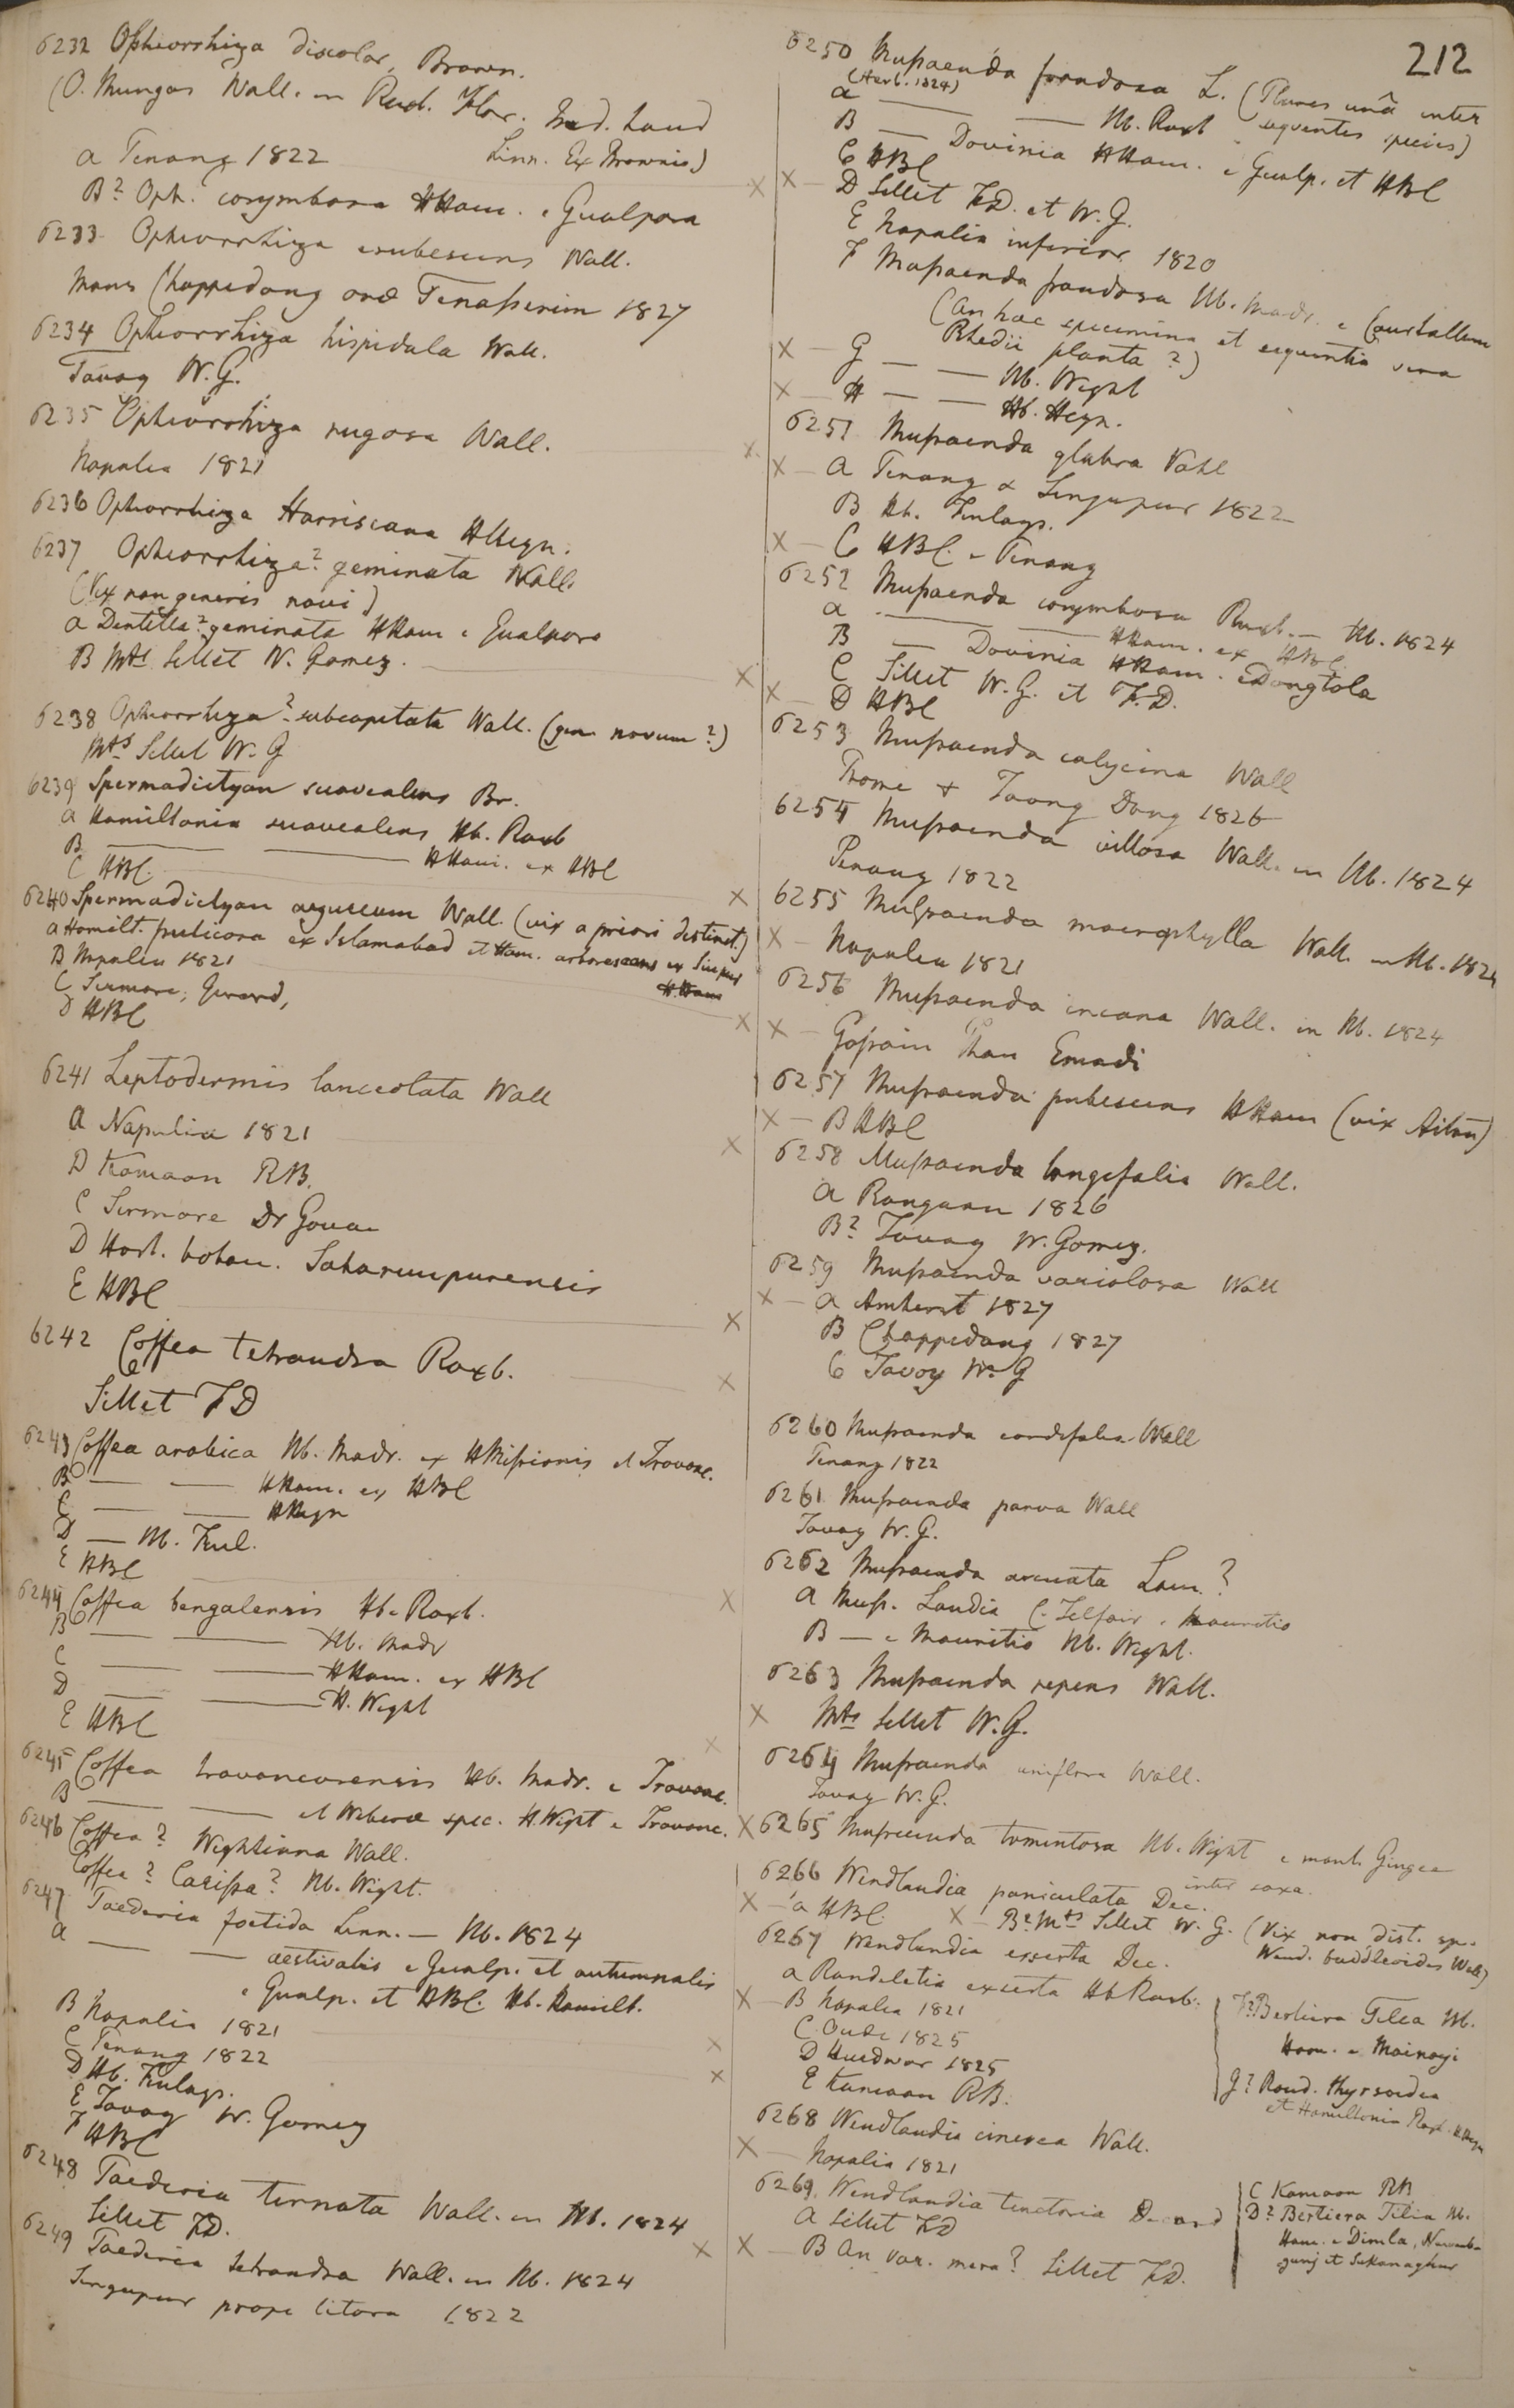 212
6232 Ophiorrhiza discolor, Brown.
(O. Mungos Wall. in Roxb. Flor. Ind. haud
Linn. Ex Brownio)
a Penang 1822
B? Oph. corymbosa HHam. e Gualpara
6233 Ophiorrhiza erubescens Wall.
Mons Chappedong oræ Tenasserim 1827
6234 Ophiorrhiza hispidula Wall.
Tavoy W.G.
6235 Ophiorrhiza rugosa Wall.
Napalia 1821
6236 Ophiorrhiza Harrisiana HHeyn.
6237 Ophiorrhiza? geminata Wall.
(Vix non generis novi)
a Dentella? geminata HHam e Gualpara
B Mts Sillet W. Gomez.
6238 Ophiorrhiza? subcapitata Wall. (gen novum?)
Mts Sillet W.G
6239 Spermadictyon suaveolens Br.
a Hamiltonia suaveolens Hb. Roxb
B — — HHam. ex HBC
C HBC.
6240 Spermadictyon azureum Wall. (vix a priori distinct.)
a Hamilt. fruticosa ex Islamabad et Ham. arborescens ex
HHam
B Napalia 1821
C Sirmore, Gerard,
D HBC
6241 Leptodermis lanceolata Wall
a Napalia 1821
B Kamaon RB.
C Sirmore Dr Govan
D Hort. botan. Saharunpurensis
E HBC
6242 Coffea tetrandra Roxb.
Sillet FD
6243 Coffea arabica Hb. Madr. ex HMissionis et Travanc.
B — — HHam. ex HBC
C — — HHeyn
D — Hb. Finl.
E HBC
6244 Coffea bengalensis Hb. Roxb.
B — — Hb. Madr
C — — HHam. ex HBC
D — — H. Wight
E HBC
6245 Coffea travancorensis Hb. Madr. e Travanc.
B — — et Weberæ spec. H.Wight e Travanc.
6246 Coffea? Wightiana Wall.
Coffea? Carissa? Hb. Wight.
6247 Paederia foetida Linn. — Hb. 1824
a — — aestivalis e Gualp. et autumnalis
e Gualp. et HBC. Hb. Hamilt.
B Napalia 1821
C Penang 1822
D Hb. Finlays.
E Tavoy W. Gomez
F HBC
6248 Paederia ternata Wall. in Hb. 1824
Sillet FD.
6249 Paederia tetrandra Wall. in Hb. 1824
Singapur prope litora 1822
6250 Mussaenda frondosa L. (Plures unâ inter
sequentes species)
(Herb. 1824)
a — — Hb. Roxb
B — Dovinia HHam. e Gualp. et HBC
C HBC
X X — D Sillet FD. et W.G.
E Napalia inferior 1820
F Mussaenda frondosa Hb. Madr. e Courtallum
(An hæc specimina et sequentia vera
Rhedii planta?)
X — G — — Hb. Wight
X — H — — Hb. Heyn.
6251 Mussaenda glabra Vahl
X — a Penang & Singapur 1822
B Hb. Finlays.
X — C HBC. e Penang
6252 Mussaenda corymbosa Roxb. — Hb. 1824
a — — HHam. ex HBC.
B — Dovinia HHam. e Dongtola
C Sillet W.G. et F.D.
X — D HBC
6253 Mussaenda calycina Wall
Prome & Taong Dong 1826
6254 Mussaenda villosa Wall. in Hb. 1824
Penang 1822
6255 Mussaenda macrophylla Wall. in Hb. 1824
X — Napalia 1821
6256 Mussaenda incana Wall. in Hb. 1824
X — Gosain Than Emodi
6257 Mussaenda pubescens HHam (vix Aiton)
X — B HBC
6258 Mussaenda longifolia Wall.
a Rangoon 1826
B? Tavoy W. Gomez.
6259 Mussaenda variolosa Wall
X — a Amherst 1827
B Chappedong 1827
C Tavoy W.G
6260 Mussaenda cordifolia Wall
Penang 1822
6261 Mussaenda parva Wall
Tavoy W.G.
6262 Mussaenda arcuata Lam.?
a Muss. Landia C. Telfair e Mauritio
B — e Mauritio Hb. Wight.
6263 Mussaenda repens Wall.
X Mts Sillet W.G.
6264 Mussaenda uniflora Wall.
Tavoy W.G.
X 6265 Mussaenda tomentosa Hb. Wight e mont. Gingee
inter saxa.
6266 Wendlandia paniculata Dec.
X — a HBC. X — B? Mts Sillet W.G. (Vix non dist. sp.
Wend. buddleoides Wall)
6267 Wendlandia exserta Dec.
a Rondeletia exserta Hb Roxb.
X — B Napalia 1821
C Oude 1825
D Hurdwar 1825
E Kamaon RB.
F? Bertiera Tilea Hb.
Ham. e Mainayi
G? Rond. thyrsoidea
et Hamiltonia Roxb. H.Heyn
6268 Wendlandia cinerea Wall.
X — Napalia 1821
6269 Wendlandia tinctoria Decand
a Sillet FD
X X — B An var. mera? Sillet FD.
C Kamaon RB
D? Bertiera Tilia Hb.
Ham. e Dimla,
gunj et Sukanaghur